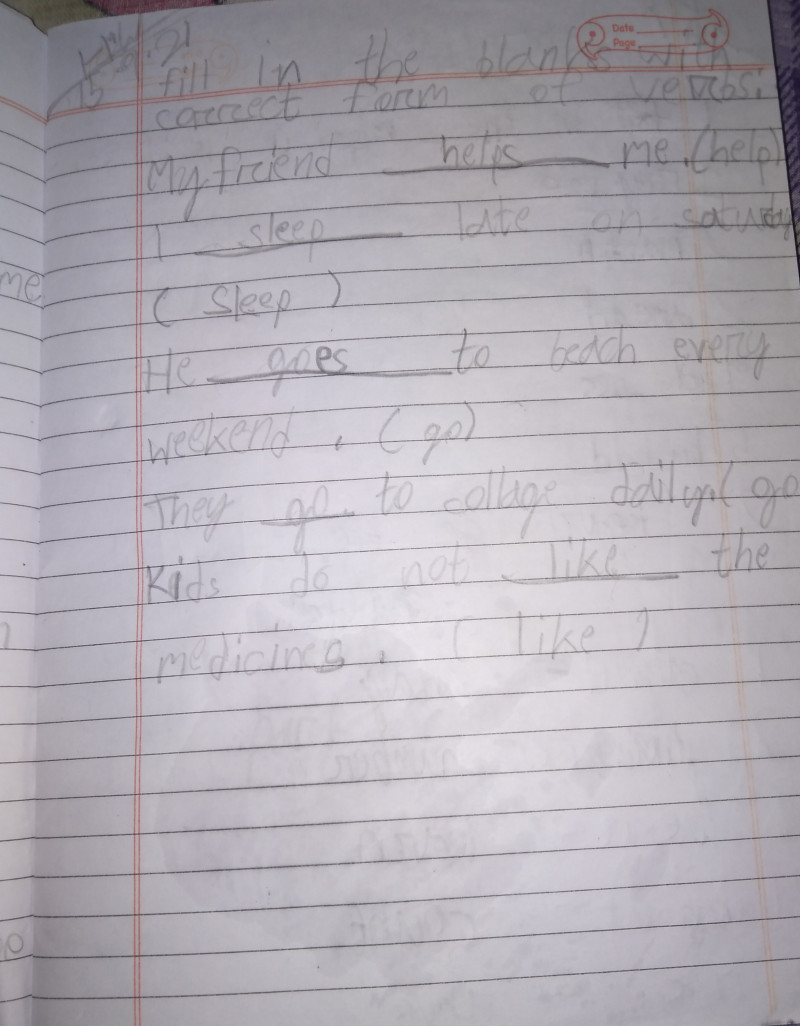 Date
Page
fill in the blanks with
correct form of verbs.
My friend helps me. (help)
I sleep late on saturday
(Sleep)
He goes to beach every
weekend. (go)
They go to collage daily. (go
Kids do not like the
medicines. (like)
me